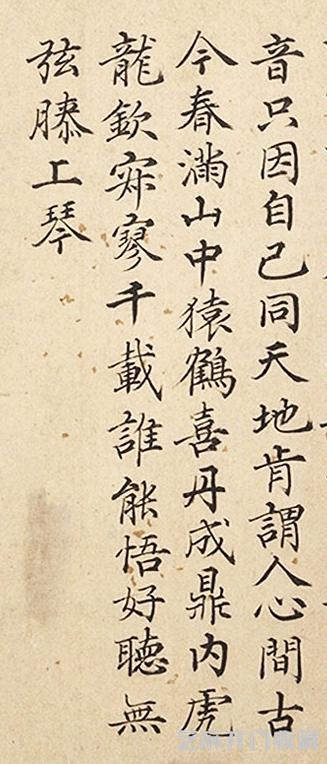 音只因自己同天地肯謂人心間古
今春滿山中猿鶴喜丹成鼎内虎
龍欽寂寥千載誰能悟好聽無
弦膝上琴